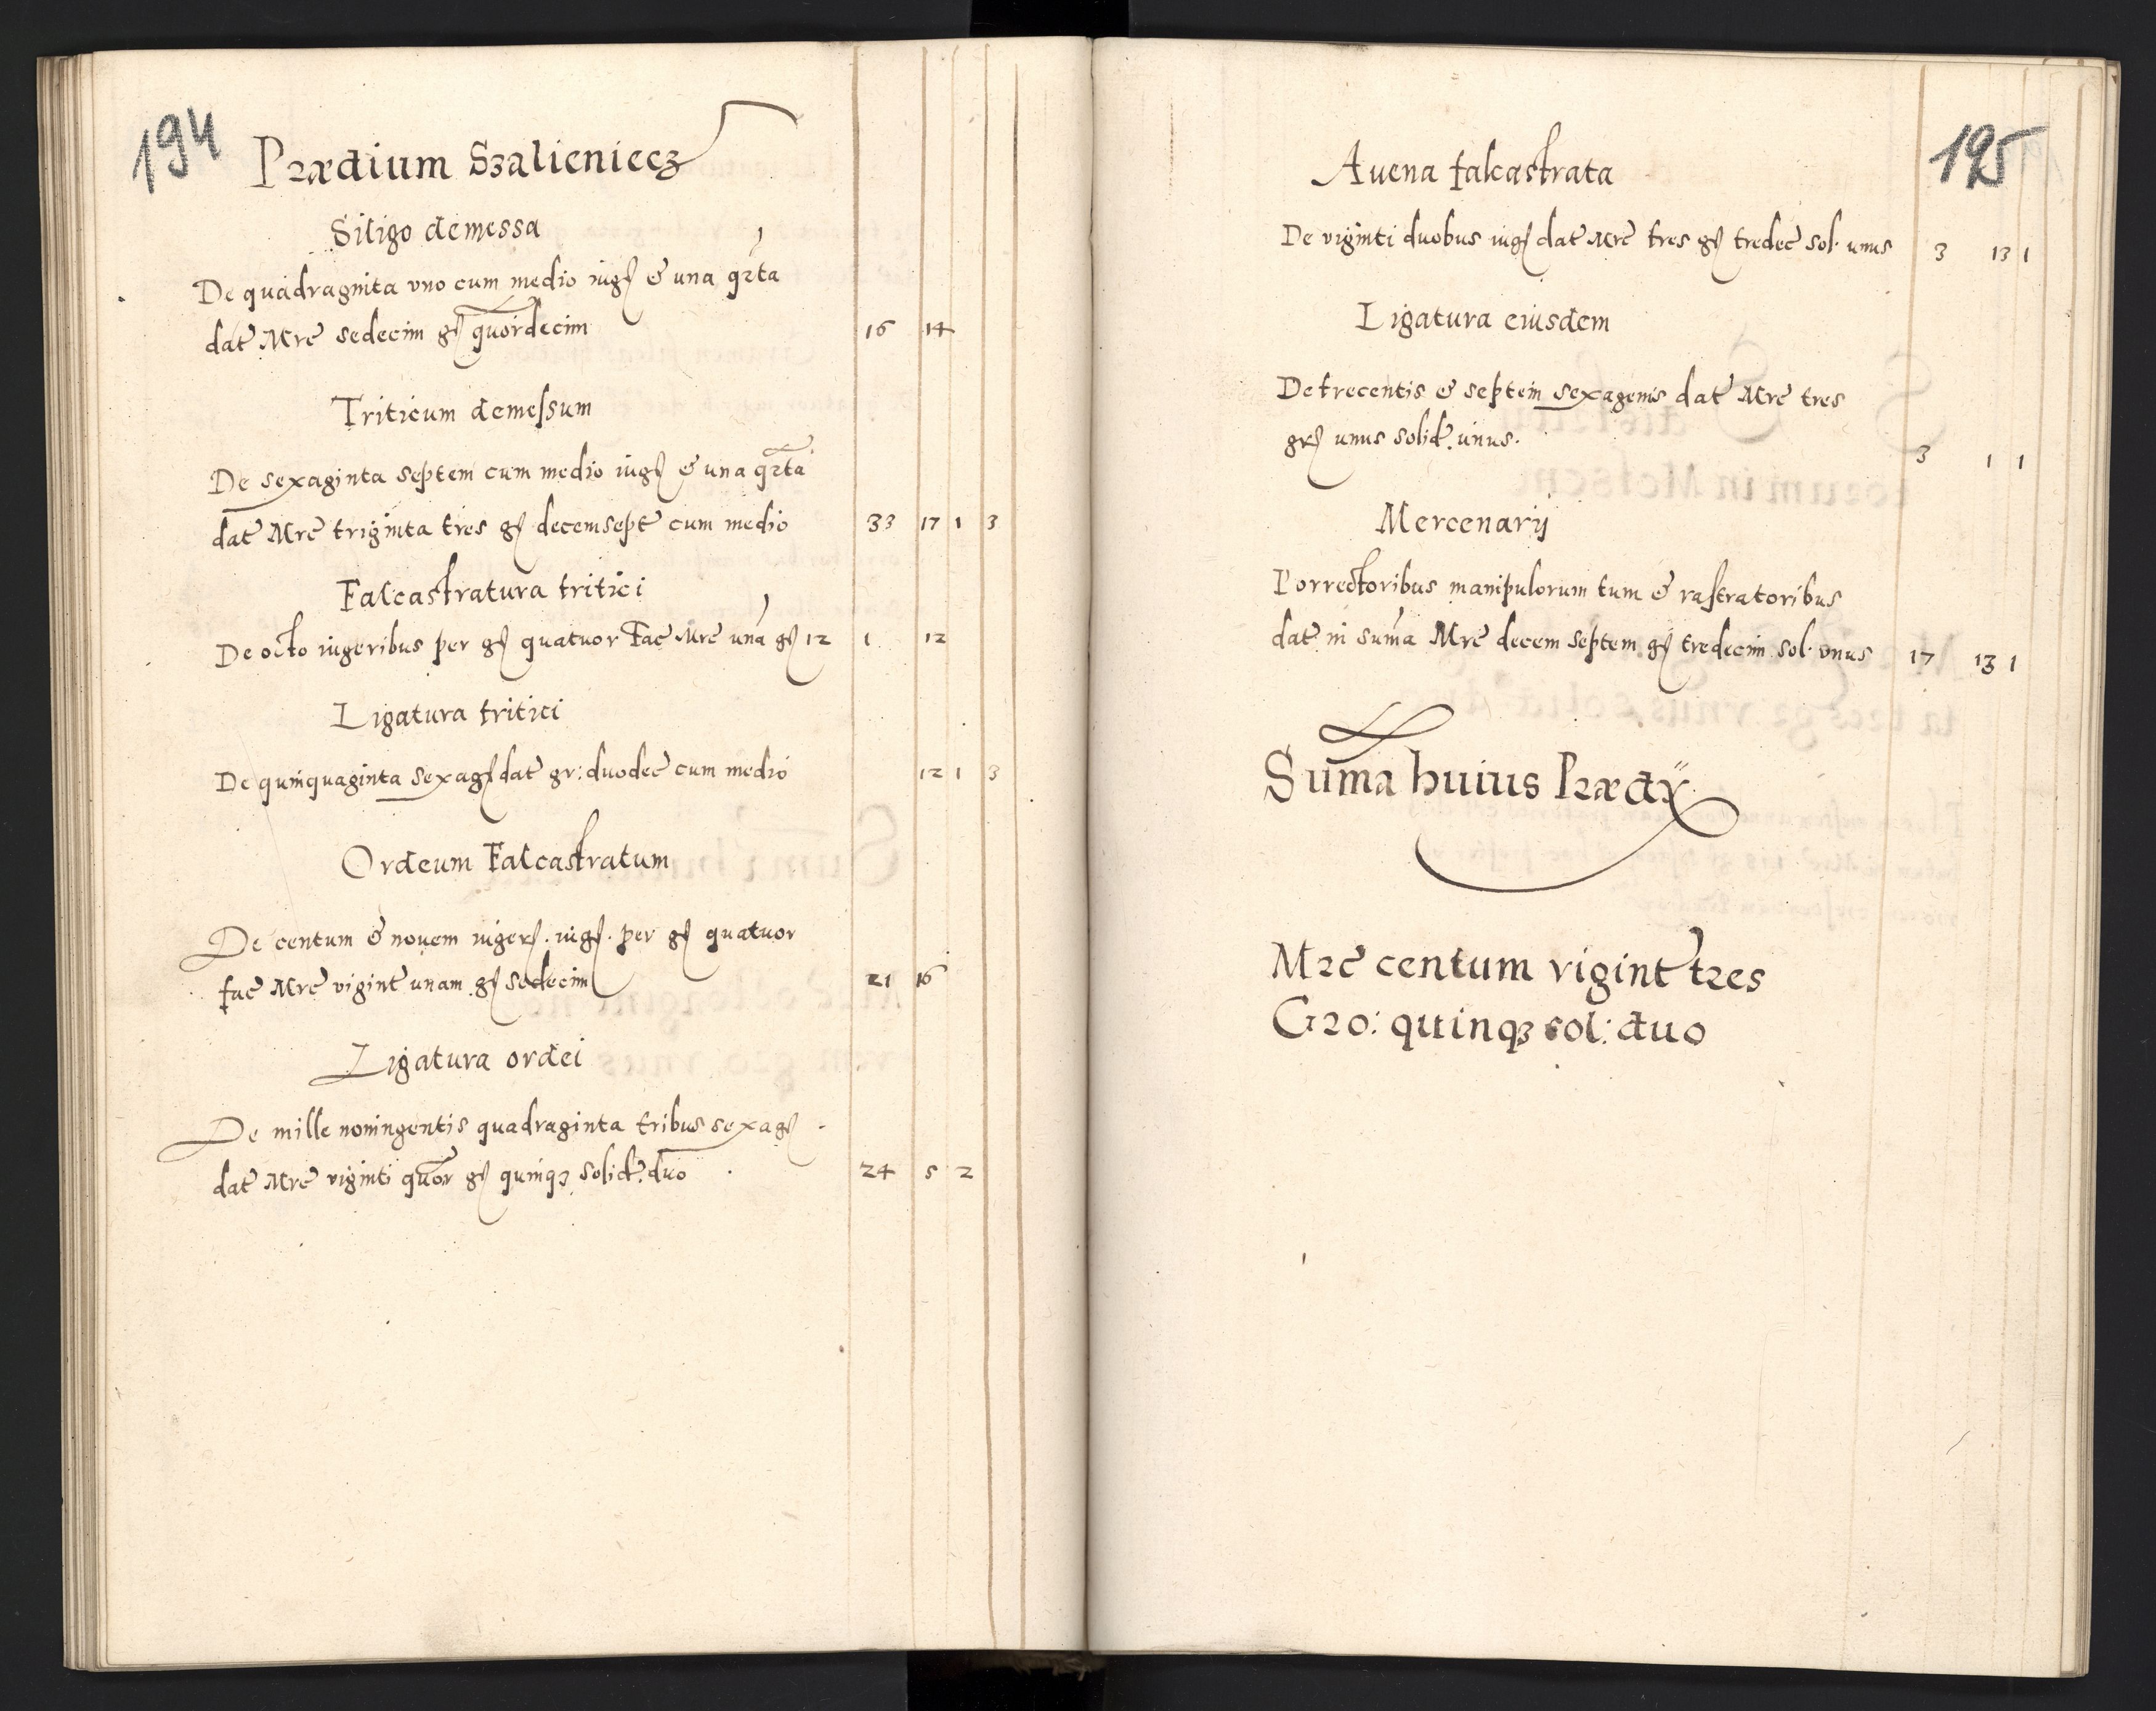 194
Prædium Szalieniecz
Siligo demessa
De quadraginta vno cum medio iug. & una qrta
dat Mrc sedecim gr quordecim 16 14
Triticum demessum
De sexaginta septem cum medio iug. & una qrta
dat Mrc triginta tres gr decemsept cum medio 33 17 1 3
Falcastratura tritici
De octo iugeribus per gr quatuor Fac Mrc una gr 12 1 12
Ligatura tritici
De quinquaginta sexag. dat gr: duodec cum medio 12 1 3
Ordeum Falcastratum
De centum & nouem iuger. iug. per gr quatuor
fac Mrc vigint unam gr sedecim 21 16
Ligatura ordei
De mille noningentis quadraginta tribus sexag.
dat Mrc viginti quor gr quinqz solid. duo 24 5 2
195
Auena falcastrata
De viginti duobus iug. dat Mrc tres gr tredec sol. unus 3 13 1
Ligatura eiusdem
De trecentis & septem sexagenis dat Mrc tres
grs unus solid. unus. 3 1 1
Mercenarij
Porrectoribus manipulorum tum & rastratoribus
dat in suma Mrc decem septem gr tredecim sol. vnus 17 13 1
Suma huius Prædij
Mrc centum vigint tres
Gro: quinqz sol: duo